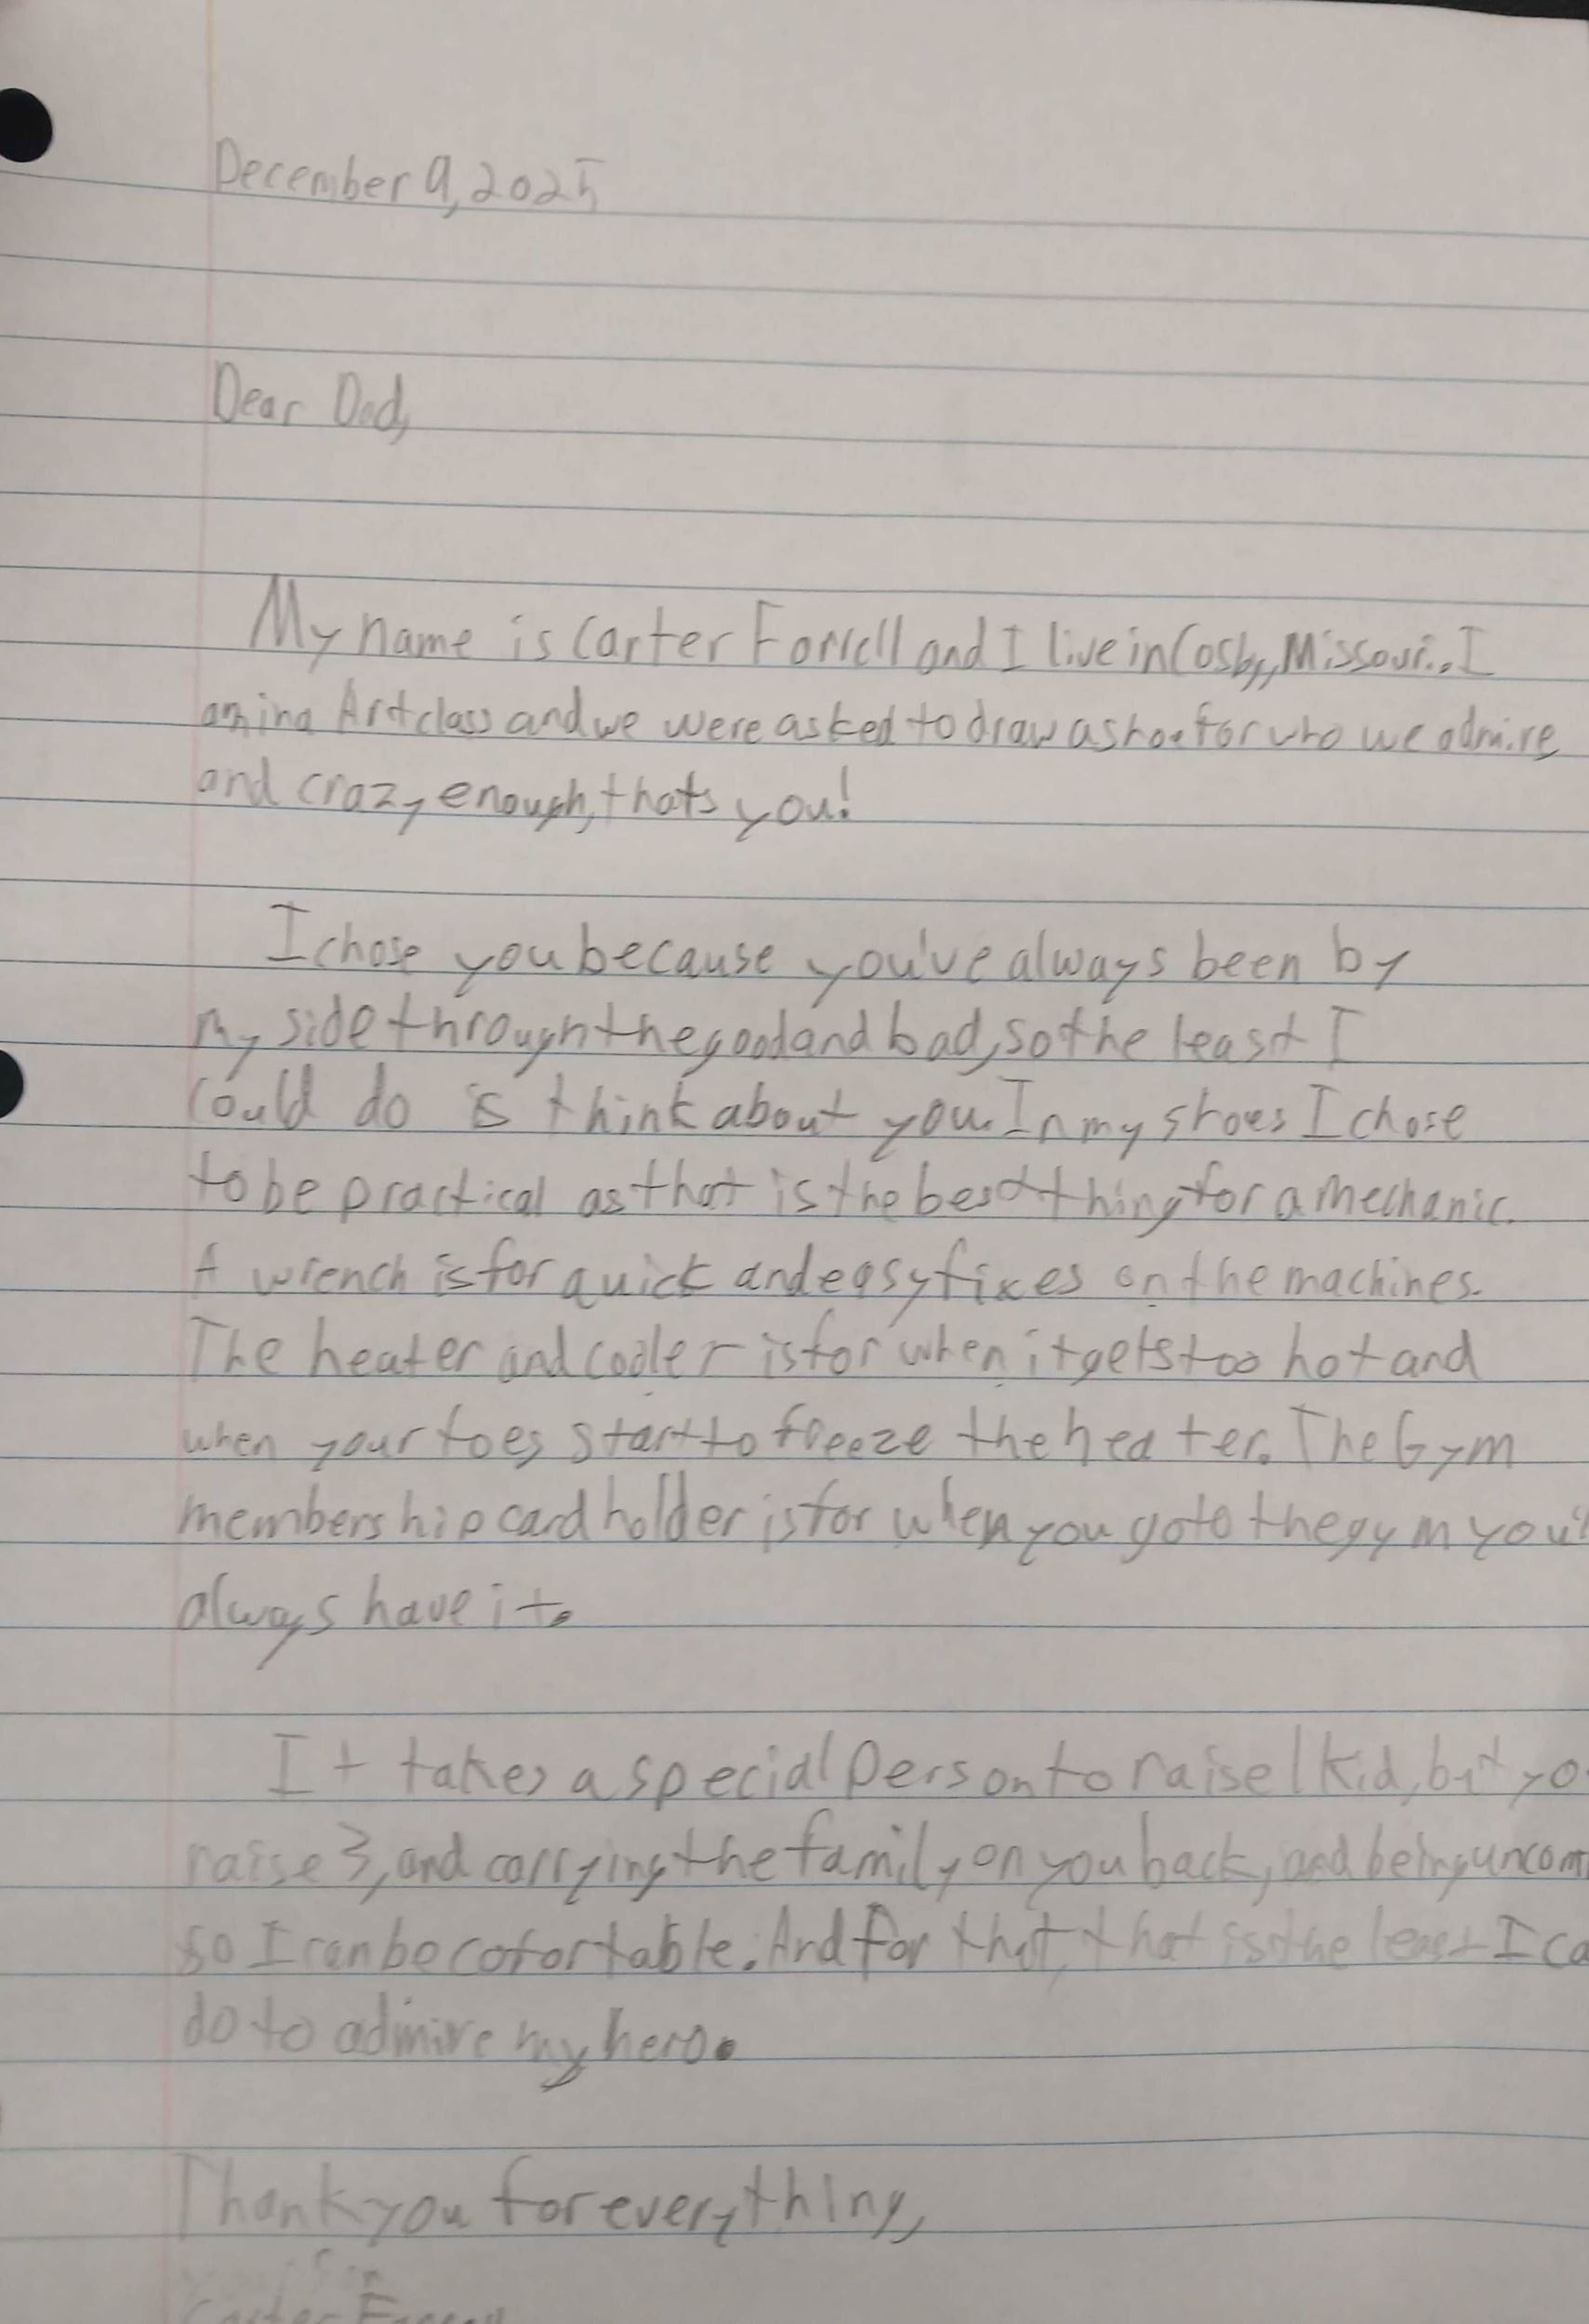 December 9, 2025
Dear Dad,
My name is Carter Forrell and I live in Cosby, Missouri. I
am in a Art class and we were asked to draw a shoe for who we admire,
and crazy enough, thats you!
I chose you because you've always been by
my side through the good and bad, so the least I
could do is think about you. In my shoes I chose
to be practical as that is the best thing for a mechanic.
A wrench is for quick and easy fixes on the machines.
The heater and cooler is for when it gets too hot and
when your toes start to freeze the heater. The Gym
membership card holder is for when you go to the gym you'll
always have it.
It takes a special person to raise 1 kid, but yo
raise 3, and carrying the family on you back, and being uncom
so I can be cofortable. And for that, that is the least I co
do to admire my hero.
Thank you for everything,
Carter